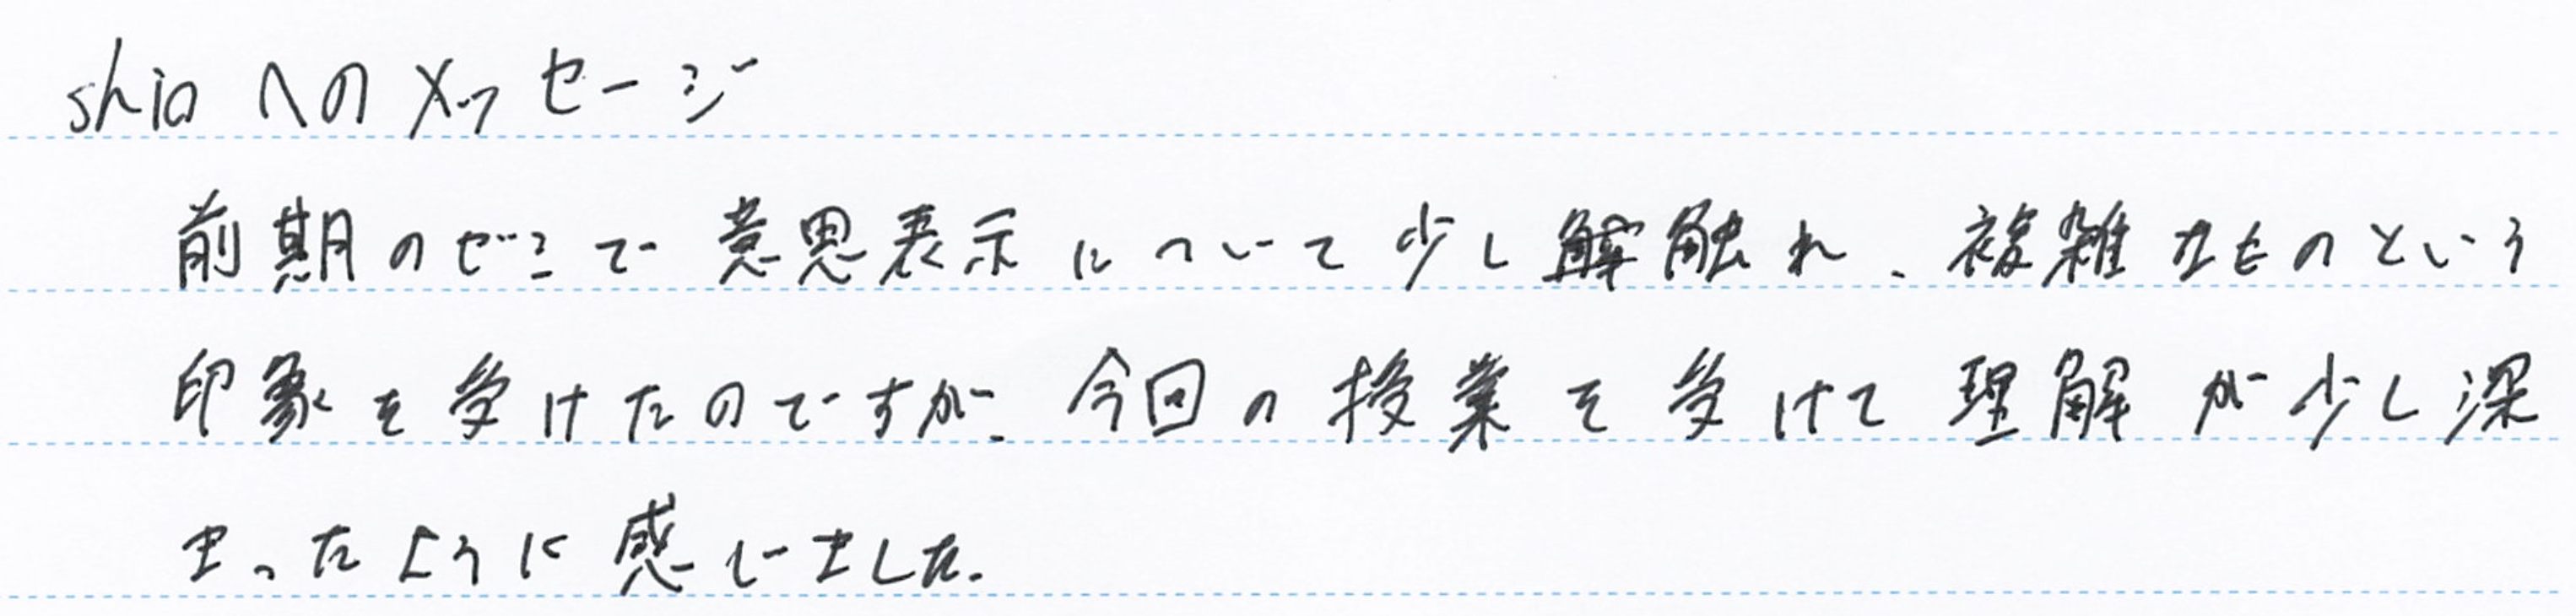 shioへのメッセージ
前期のゼミで意思表示について少し触れ、複雑なものという
印象を受けたのですが、今回の授業を受けて理解が少し深
まったように感じました。